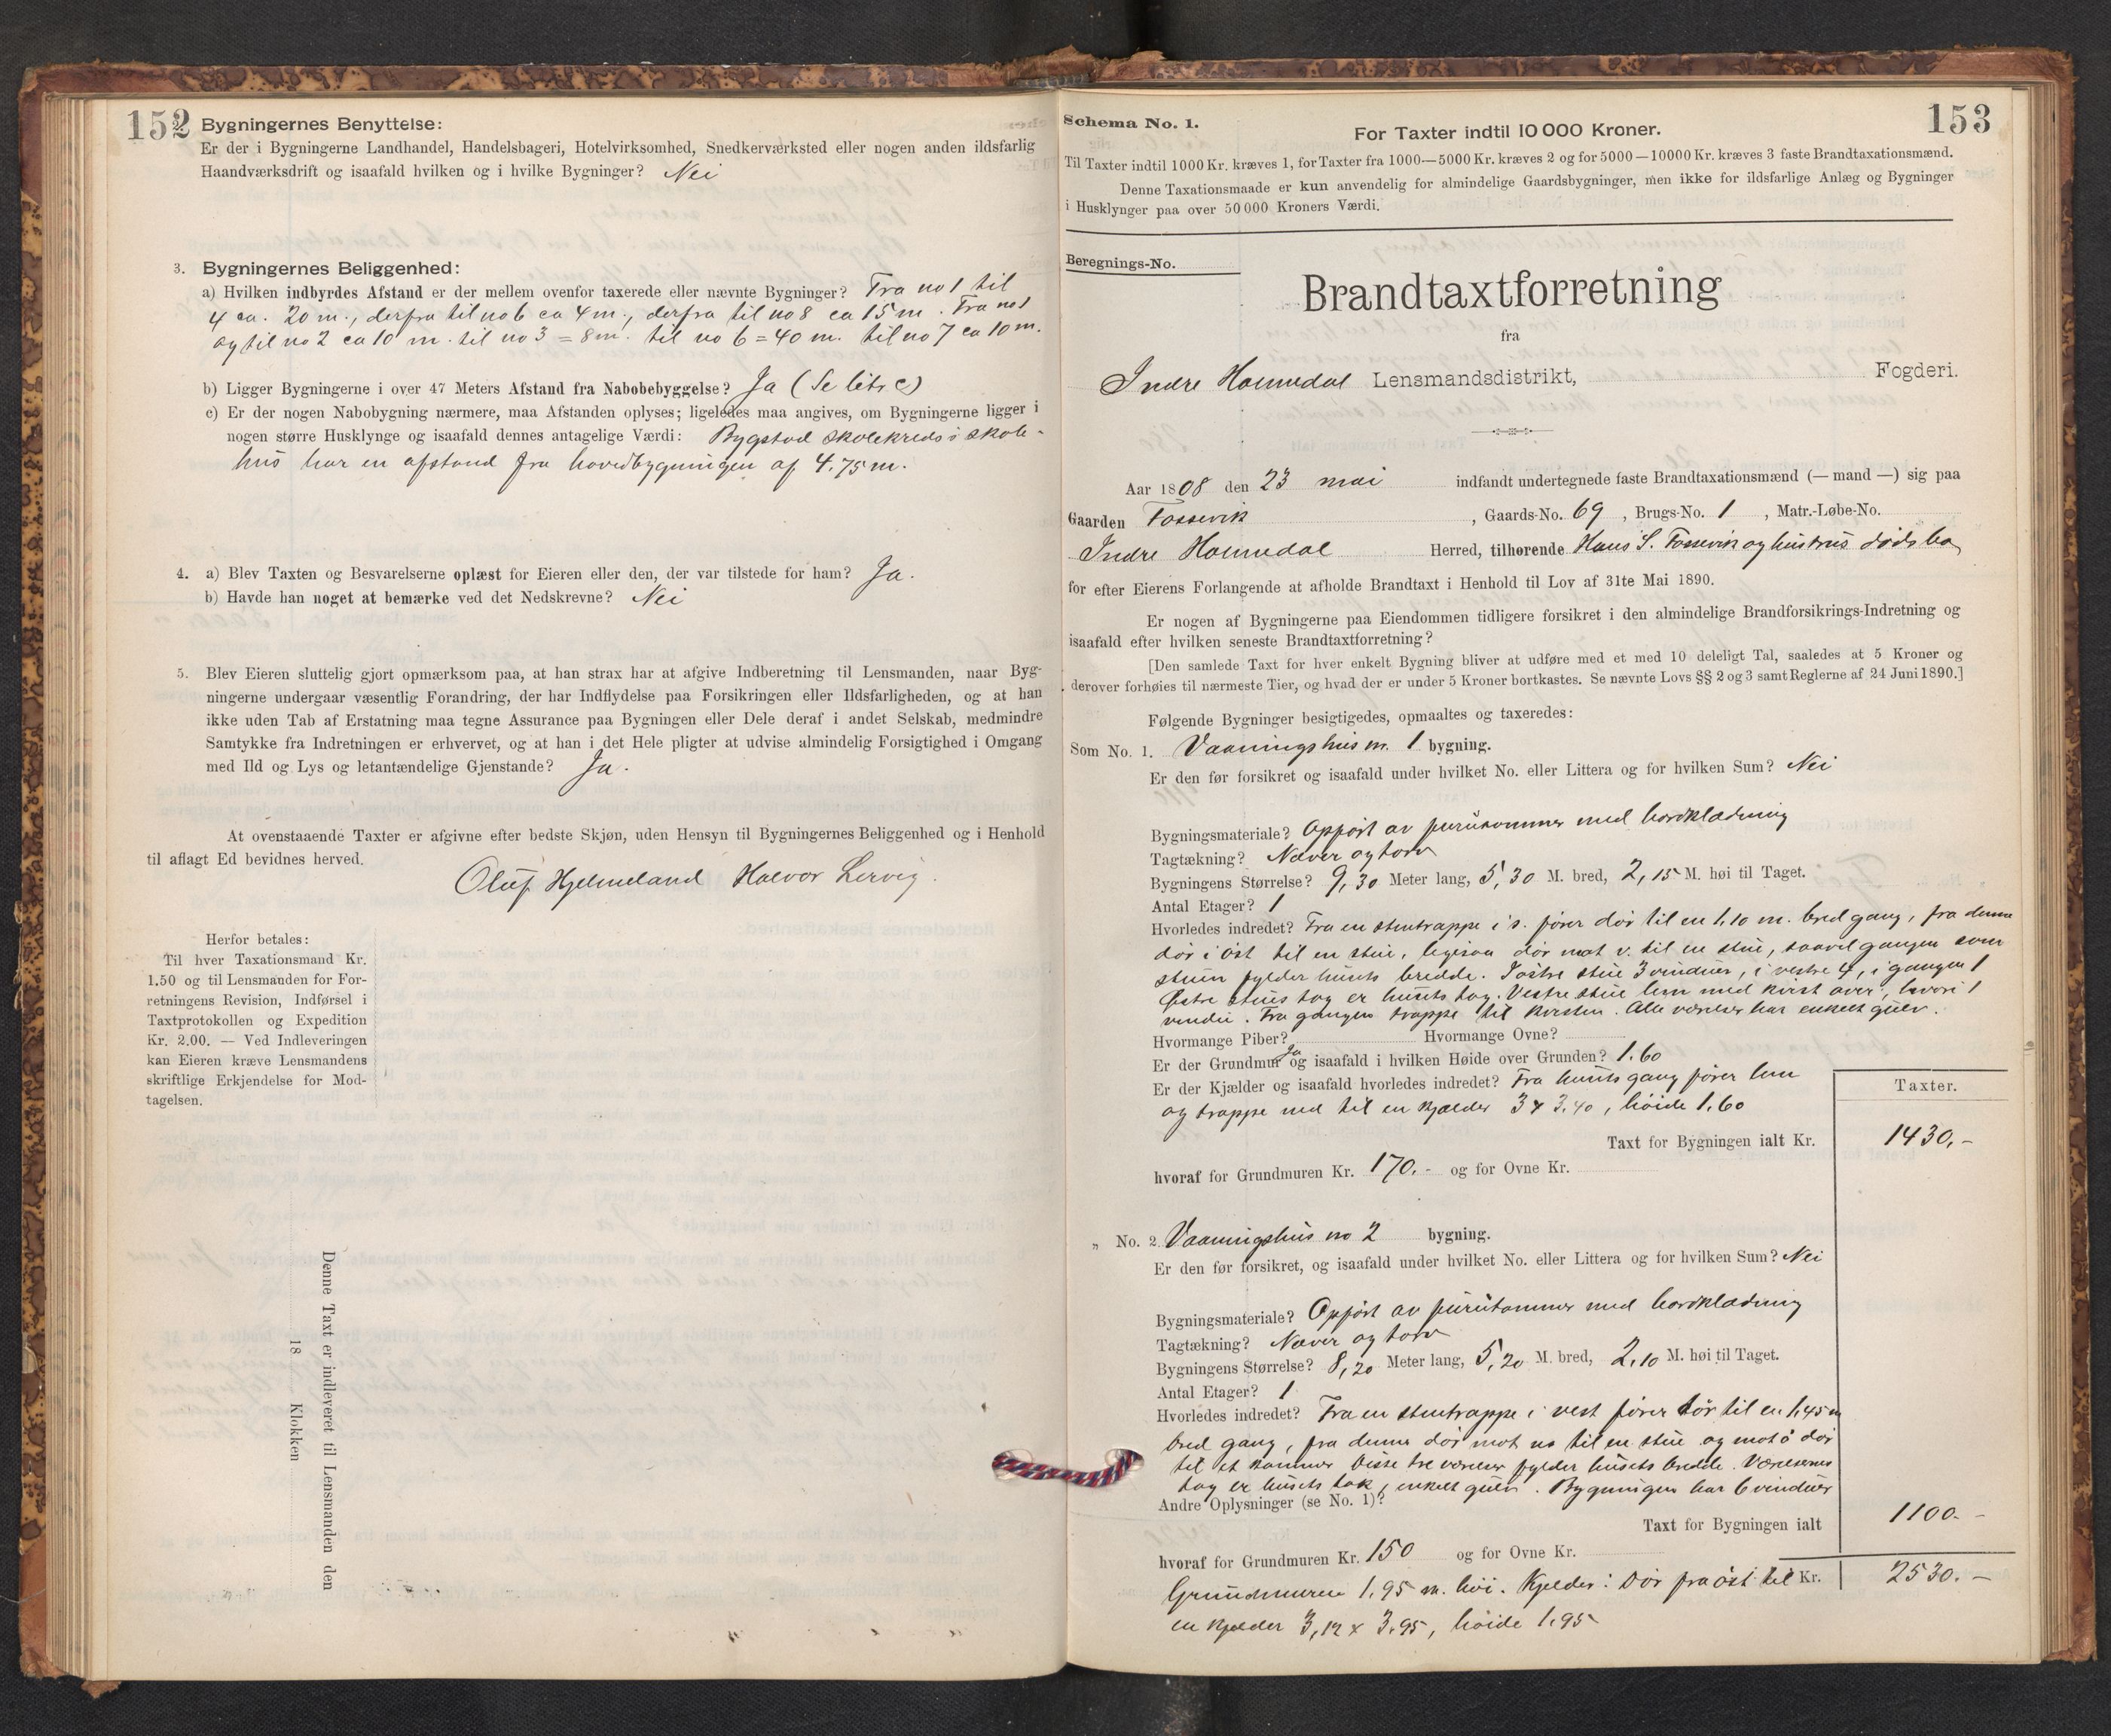 152
Bygningernes Benyttelse:
Er der i Bygningerne Landhandel, Handelsbageri, Hotelvirksomhed, Snedkerværksted eller nogen anden ildsfarlig
Haandværksdrift og isaafald hvilken og i hvilke Bygninger? Nei
3. Bygningernes Beliggenhed:
a) Hvilken indbyrdes Afstand er der mellem ovenfor taxerede eller nævnte Bygninger? Fra no 1 til
4 ca. 20 m., derfra til no 6 ca 4 m., derfra til no 8 ca 15 m. Fra no 1
og til no 2 ca 10 m. til no 3 = 8 m. til no 6 = 40 m. til no 7 ca 10 m.
b) Ligger Bygningerne i over 47 Meters Afstand fra Nabobebyggelse? Ja (Se litr c)
c) Er der nogen Nabobygning nærmere, maa Afstanden oplyses; ligeledes maa angives, om Bygningerne ligger i
nogen større Husklynge og isaafald dennes antagelige Værdi: Bygstad skolekreds's skole-
hus har en afstand fra hovedbygningen af 4.75 m.
4. a) Blev Taxten og Besvarelserne oplæst for Eieren eller den, der var tilstede for ham? Ja.
b) Havde han noget at bemærke ved det Nedskrevne? Nei
5. Blev Eieren sluttelig gjort opmærksom paa, at han strax har at afgive Indberetning til Lensmanden, naar Byg-
ningerne undergaar væsentlig Forandring, der har Indflydelse paa Forsikringen eller Ildsfarligheden, og at han
ikke uden Tab af Erstatning maa tegne Assurance paa Bygningen eller Dele deraf i andet Selskab, medmindre
Samtykke fra Indretningen er erhvervet, og at han i det Hele pligter at udvise almindelig Forsigtighed i Omgang
med Ild og Lys og letantændelige Gjenstande? Ja.
At ovenstaaende Taxter er afgivne efter bedste Skjøn, uden Hensyn til Bygningernes Beliggenhed og i Henhold
til aflagt Ed bevidnes herved.
Oluf Hjelmeland Halvor Lervig.
Herfor betales:
Til hver Taxationsmand Kr.
1.50 og til Lensmanden for For-
retningens Revision, Indførsel i
Taxtprotokollen og Expedition
Kr. 2.00. — Ved Indleveringen
kan Eieren kræve Lensmandens
skriftlige Erkjendelse for Mod-
tagelsen.
Denne Taxt er indleveret til Lensmanden den
18 Klokken
153
Schema No. 1.
For Taxter indtil 10 000 Kroner.
Til Taxter indtil 1000 Kr. kræves 1, for Taxter fra 1000—5000 Kr. kræves 2 og for 5000—10000 Kr. kræves 3 faste Brandtaxationsmænd.
Denne Taxationsmaade er kun anvendelig for almindelige Gaardsbygninger, men ikke for ildsfarlige Anlæg og Bygninger
i Husklynger paa over 50 000 Kroners Værdi.
Beregnings-No.
Brandtaxtforretning
fra
Indre Holmedal Lensmandsdistrikt, Fogderi.
Aar 1808 den 23 mai indfandt undertegnede faste Brandtaxationsmænd (— mand —) sig paa
Gaarden Fossevik, Gaards-No. 69, Brugs-No. 1, Matr.-Løbe-No.
Indre Holmedal Herred, tilhørende Hans S. Fossevik og hustrus dødsbo,
for efter Eierens Forlangende at afholde Brandtaxt i Henhold til Lov af 31te Mai 1890.
Er nogen af Bygningerne paa Eiendommen tidligere forsikret i den almindelige Brandforsikrings-Indretning og
isaafald efter hvilken seneste Brandtaxtforretning?
[Den samlede Taxt for hver enkelt Bygning bliver at udføre med et med 10 deleligt Tal, saaledes at 5 Kroner og
derover forhøies til nærmeste Tier, og hvad der er under 5 Kroner bortkastes. Se nævnte Lovs §§ 2 og 3 samt Reglerne af 24 Juni 1890.]
Følgende Bygninger besigtigedes, opmaaltes og taxeredes:
Som No. 1. Vaaningshus m. 1 bygning.
Er den før forsikret og isaafald under hvilket No. eller Littera og for hvilken Sum? Nei
Bygningsmateriale? Opført av furutømmer med bordklædning
Tagtækning? Næver og torv
Bygningens Størrelse? 9,30 Meter lang, 5,30 M. bred, 2,15 M. høi til Taget.
Antal Etager? 1
Hvorledes indredet? Fra en stentrappe i s. fører dør til en 1,10 m. bred gang, fra denne
dør i øst til en stue, ligesaa dør mot v. til en stue, saavel gangen som
stuen fylder husets bredde. I østre stue 3 vinduer, i vestre 4, i gangen 1
Østre stues tag er husets tag. Vestre stue lem med kvist over, hvori 1
vindu. Fra gangen trappe til kvisten. Alle værelser har enkelt gulv.
Hvormange Piber? Hvormange Ovne?
Er der Grundmur Ja og isaafald i hvilken Høide over Grunden? 1.60
Er der Kjælder og isaafald hvorledes indredet? Fra husets gang fører lem
og trappe ned til en kjælder 3 x 3,40, høide 1.60
Taxter.
Taxt for Bygningen ialt Kr. 1430,-
hvoraf for Grundmuren Kr. 170.- og for Ovne Kr.
„ No. 2. Vaaningshus no 2 bygning.
Er den før forsikret, og isaafald under hvilket No. eller Littera og for hvilken Sum? Nei
Bygningsmateriale? Opført av furutømmer med bordklædning
Tagtækning? Næver og torv
Bygningens Størrelse? 8,20 Meter lang, 5,20 M. bred, 2,10 M. høi til Taget.
Antal Etager? 1
Hvorledes indredet? Fra en stentrappe i vest fører dør til en 1,45 m
bred gang, fra denne dør mot no til en stue og mot ø dør
til et kammer Disse tre værelser fylder husets bredde. Værelsernes
tag er husets tak, enkelt gulv. Bygningen har 6 vinduer
Andre Oplysninger (se No. 1)?
Taxt for Bygningen ialt 1100.-
hvoraf for Grundmuren Kr. 150 og for Ovne Kr.
Grundmuren 1,95 m. høi. Kjelder: Dør fra øst til Kr. 2530.-
en kjelder 3,12 x 3,95, høide 1,95